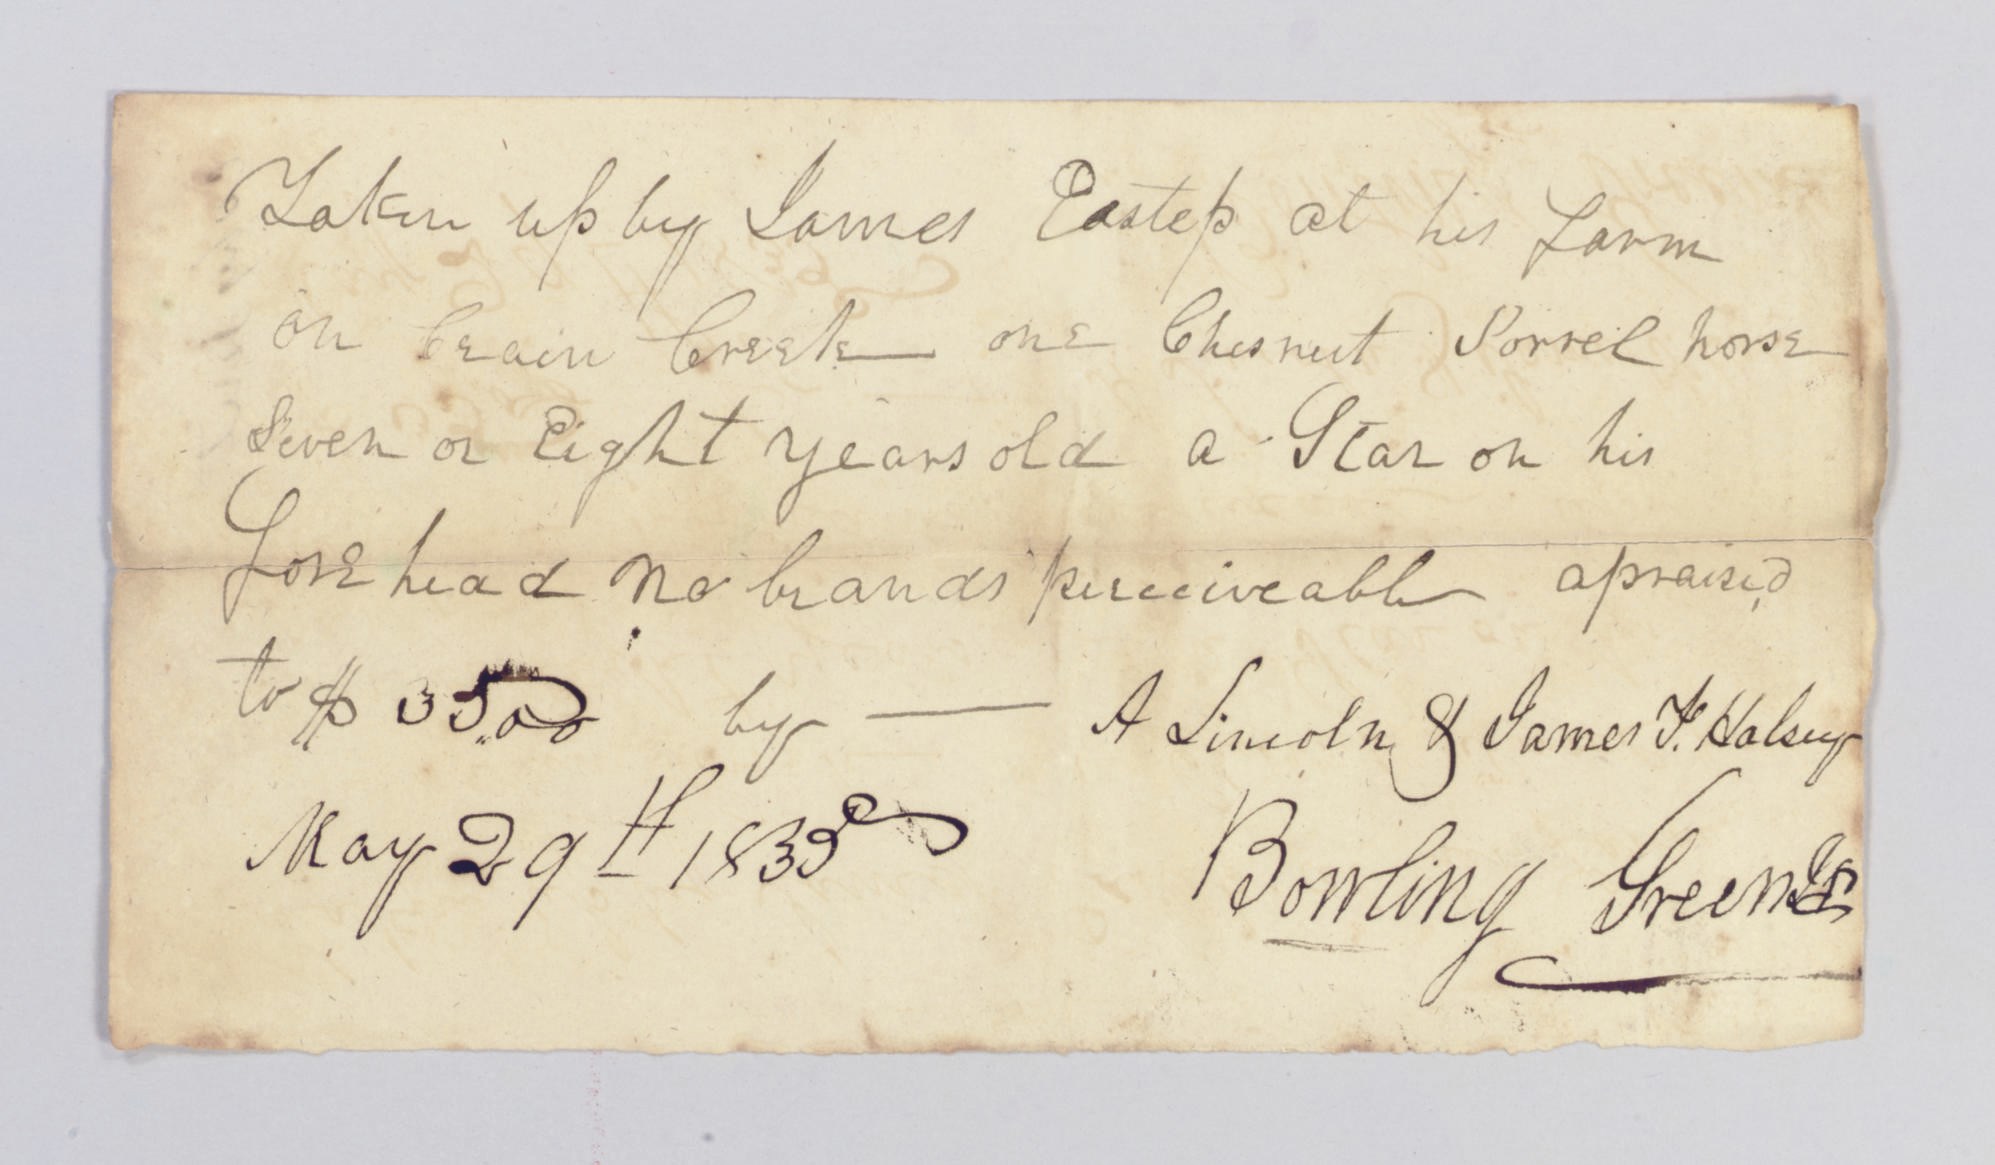 Taken up by James Eastep at his Farm
on Crain Creek one Chesnut Sorrel horse
Seven or Eight years old a Star on his
Fore head No brands perceiveable apraised
to $ 35.00 by — A Lincoln & James F. Halsey
May 29th 1833 Bowling Green